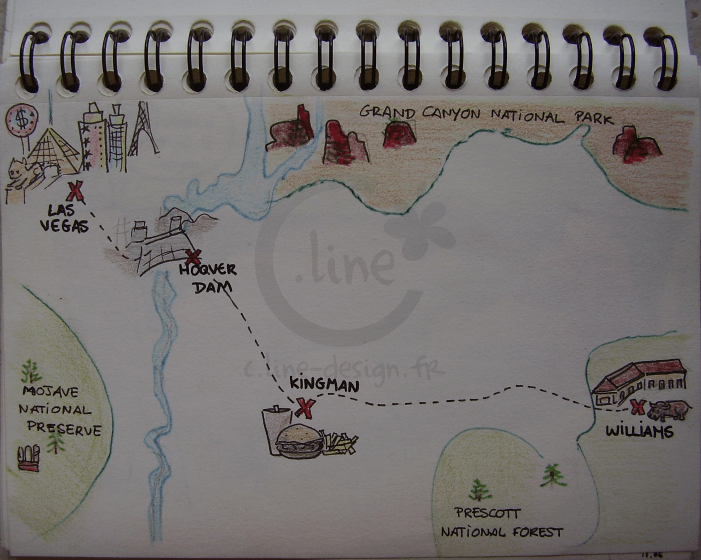 GRAND CANYON NATIONAL PARK
$
LAS
VEGAS
HOOVER
DAM
.line
c.line-design.fr
KINGMAN
MOJAVE
NATIONAL
PRESERVE
WILLIAMS
PRESCOTT
NATIONAL FOREST